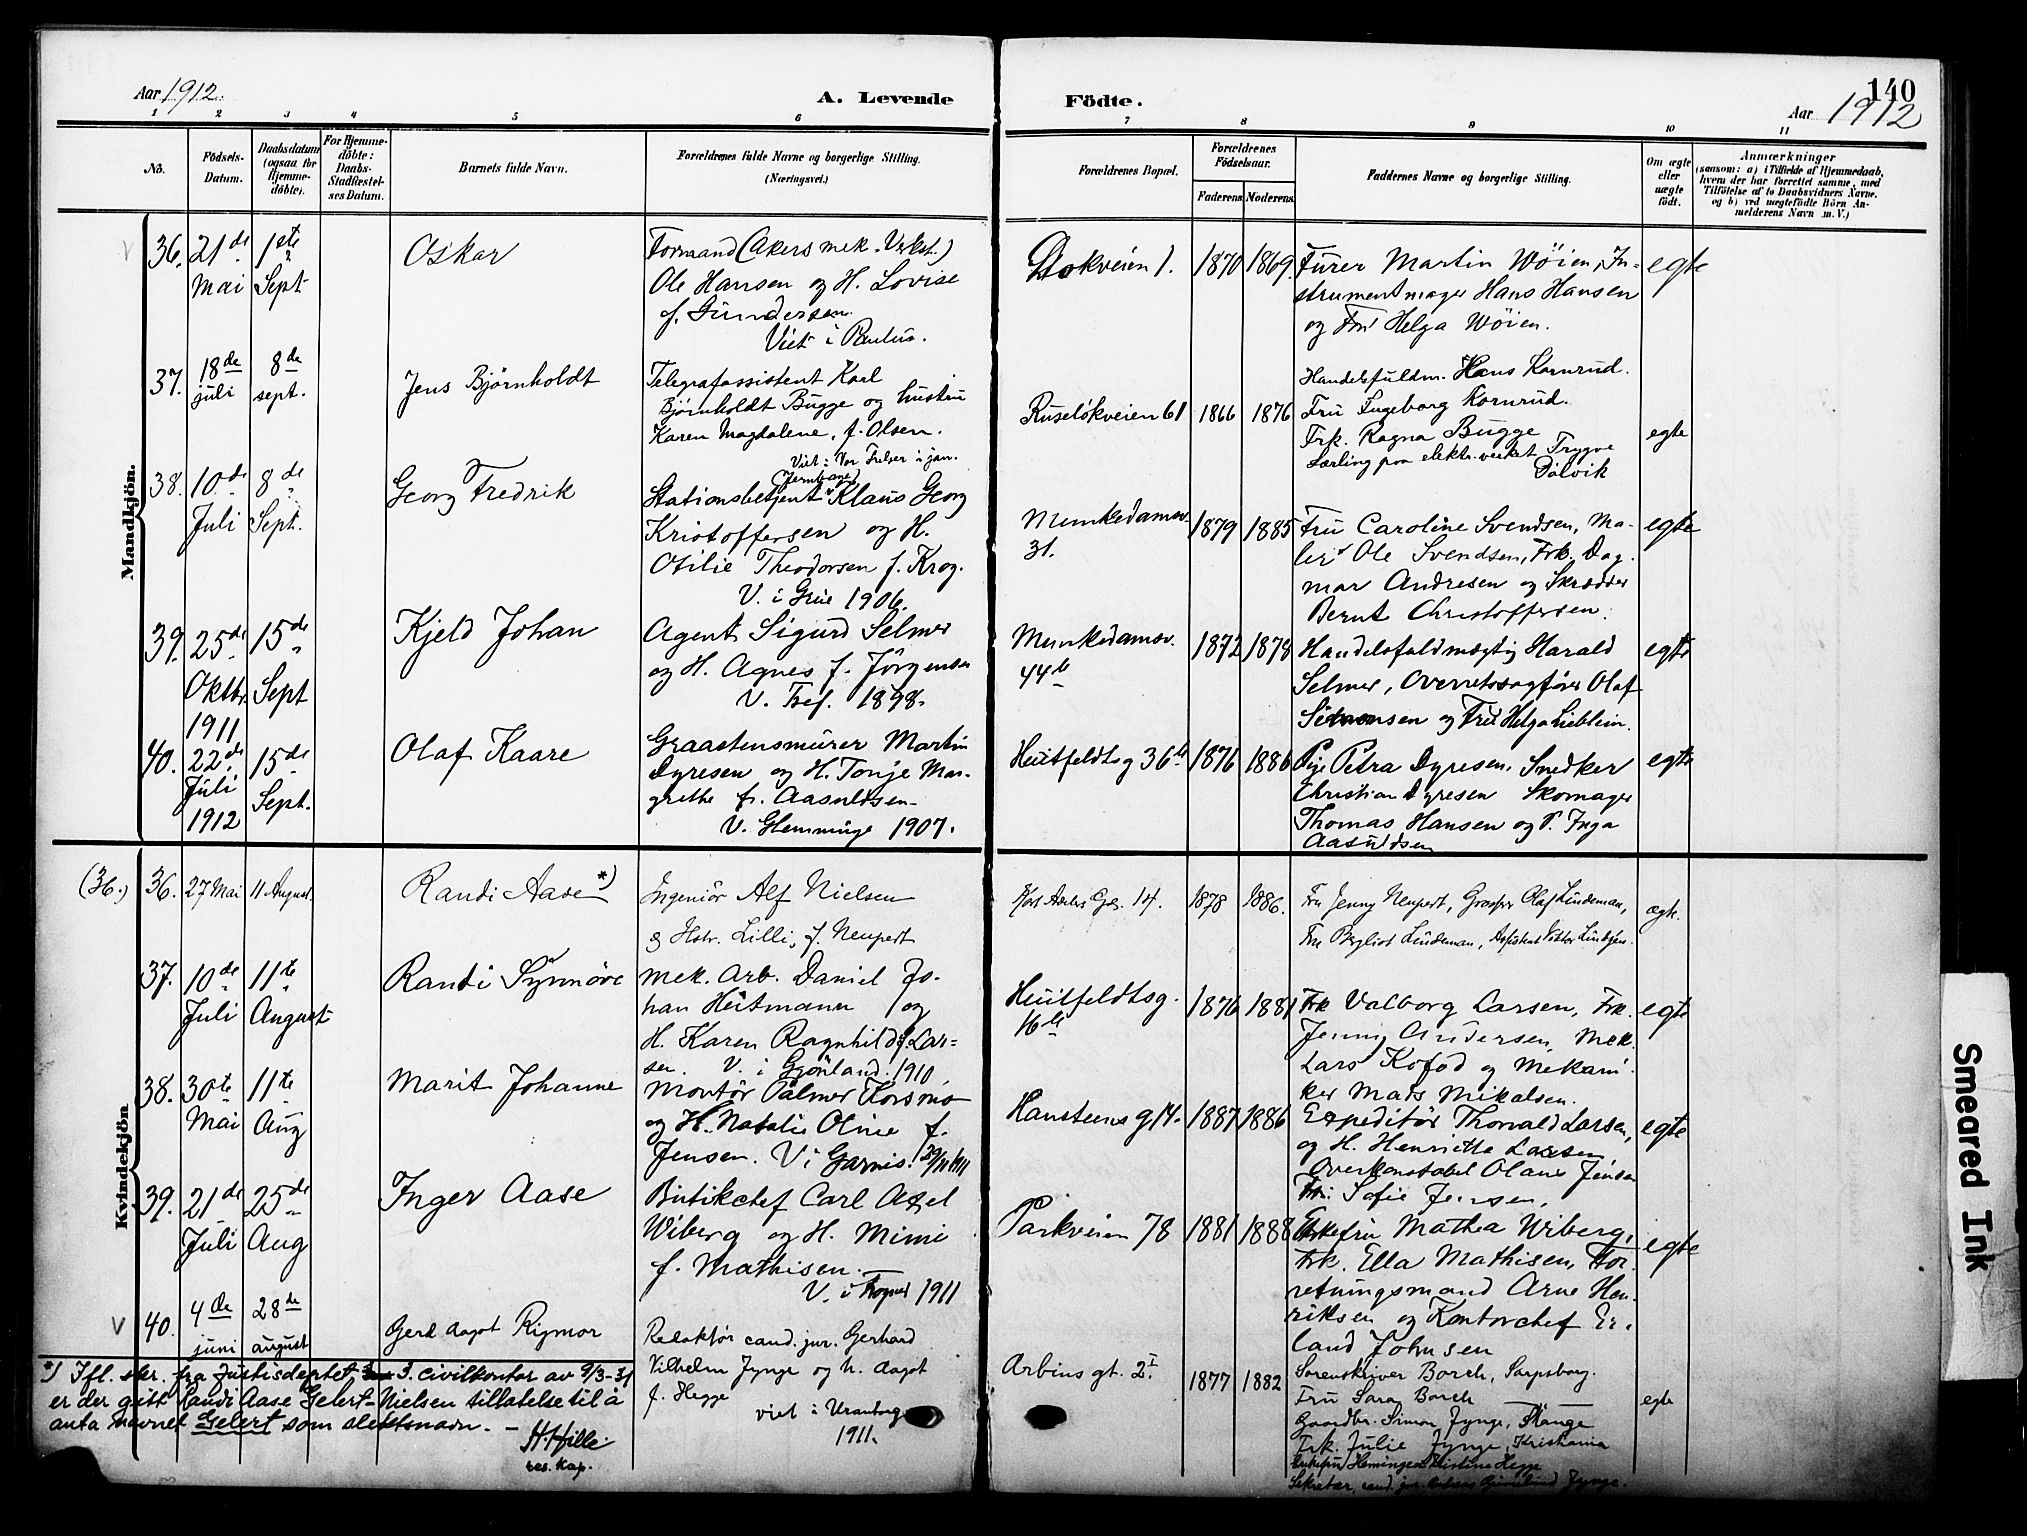 Aar 1912.
A. Levende
Födte.
140
Aar 1912
1 2 3 4 5 6 7 8 9 10 11
No.
Födsels-
Datum.
Daabsdatum
(ogsaa for
Hjemme-
döbte).
For Hjemme-
döbte:
Daabs-
Stadfæstel-
ses Datum.
Barnets fulde Navn.
Forældrenes fulde Navne og borgerlige Stilling.
(Næringsvei.)
Forældrenes Bopæl.
Forældrenes
Födselsaar.
Faderens
Moderens
Faddernes Navne og borgerlige Stilling.
Om ægte
eller
uægte
født.
Anmærkninger
(saasom: a) i Tilfælde af Hjemmedaab,
hvem der har forrettet samme, med
Tilföielse af to Daabsvidners Navne.
og b) ved uægtefödte Börn An-
melderens Navn m. V.)
Mandkjön.
36. 21de Mai
1ste Sept
Oskar
Formand (Akers mek. Verkst.)
Ole Hansen og H. Lovise
f. Gundersen.
Viet i Paulus.
Dokveien 1.
1870 1869.
Furer Martin Wöien, In-
strumentmager Hans Hansen
og Fru Helga Wöien.
egte
37. 18de juli
8de sept.
Jens Bjørnholdt
Telegrafassistent Karl
Bjørnholdt Bugge og hustru
Karen Magdalene, f. Olsen.
Viet i Vor Frelser i jan.
Ruseløkveien 61
1866 1876
Handelsfuldm. Hans Kornrud.
Fru Ingeborg Kornrud.
Frk. Ragna Bugge
Lærling paa elektr. verket Trygve
Dølvik
egte
38. 10de Juli
8de Sept.
Georg Fredrik
(Jernbane)
Stationsbetjent Klaus Georg
Kristoffersen og H.
Otilie Theodorsen f. Krog.
V. i Grue 1906.
Munkedamsv.
31.
1879 1885
Fru Caroline Svendsen, Ma-
ler Ole Svendsen, Frk. Dag-
mar Andresen og Skrædder
Bernt Christoffersen.
egte
39. 25de Oktbr. 1911
15de Sept
Kjeld Johan
Agent Sigurd Selmer
og H. Agnes f. Jörgensen
V. Tref. 1898.
Munkedamsv.
44b
1872 1878
Handelsfuldmægtig Harald
Selmer, Overretssagfører Olaf
Simonsen og Fru Helga Lieblein.
egte
40. 22de Juli 1912
15de Sept.
Olaf Kaare
Graastensmurer Martin
Dyresen og H. Tonje Mar-
grethe f. Aasuldsen
V. Glemminge 1907.
Huitfeldtsg 36b
1876 1886
Pige Petra Dyresen, Snedker
Christian Dyresen Skomager
Thomas Hansen og P. Inga
Aasuldsen
egte
Kvindekjön
(36.) 36. 27 Mai
11 August.
Randi Aase *)
Ingeniör Alf Nielsen
og Hstr. Lilli, f. Neupert
1878 1886.
Fru Jenny Neupert, Grosser Olaf Lindeman,
Fru Bergliot Lindeman, Assistent Viktor Lindgren.
ægte.
37. 10de Juli
11te August
Randi Synnøve
Mek. Arb. Daniel Jo-
han Heitmann og
H. Karen Ragnhild f. Lar-
sen. V. i Grönland. 1910.
Huitfeldtsg.
16b
1876 1881
Frk Valborg Larsen, Frk.
Jenny Andersen, Mek.
Lars Kofod og Mekani-
ker Mats Mikalsen.
egte
38. 30te Mai
11te Aug
Marit Johanne
Montör Palmer Korsmo
og H. Natalie Oline f.
Jensen. V. i Garnis. 29/11 1911
Hansteens g 14.
1887 1886
Expeditör Thorvald Larsen,
og H. Henriette Larsen,
Overkonstabel Olaus Jensen
Fru Sofie Jensen.
egte
39. 21de Juli
25de Aug
Inger Aase
Butikchef Carl Axel
Wiberg og H. Mimi
f. Mathisen.
V. i Frogner 1911
Parkveien 78
1881 1888
Enkefru Mathea Wiberg,
Frk. Ella Mathisen, For-
retningsmand Arne Hen-
riksen og Kontorchef Er-
land Johnsen
egte
40. 4de juni
28de august
Gerd Aagot Rigmor
Redaktör cand. jur. Gerhard
Vilhelm Jynge og h. Aagot
f. Hegge
viet i Uranborg
1911.
Arbins gt. 2I
1877 1882
Sorenskriver Borch, Sarpsborg.
Fru Sara Borch
Gaardbr. Simon Jynge, Stange
Frk. Julie Jynge, Kristiania
Enkefru Kristine Hegge
Sekretær, cand. jur. Jynge.
egte
*) Ifl. skr. fra Justisdeptet, 3. civilkontor av 9/3-31
er der gitt Randi Aase Gelert-Nielsen tillatelse til å
anta navnet Gelert som slektsnavn. -
H. Hille
res. kap.
Smeared Ink